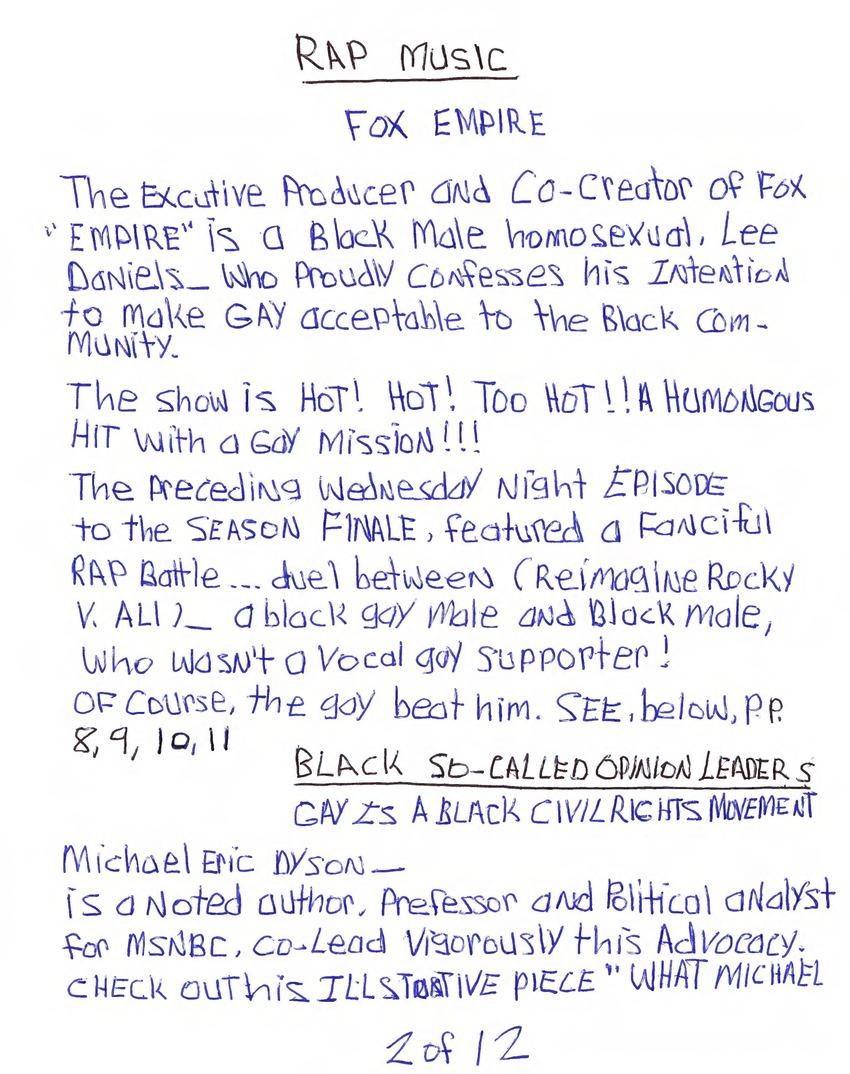 RAP MUSIC
FOX EMPIRE
The Excutive Producer and Co-Creator of Fox
"EMPIRE" is a Black Male homosexual, Lee
Daniels_ Who Proudly Confesses his Intention
to make GAY acceptable to the Black Com-
munity.
The show is HOT! HOT! Too HOT!! A HUMONGOUS
HIT with a Gay Mission!!!
The Preceding Wednesday Night EPISODE
to the SEASON FINALE, featured a Fanciful
RAP Battle... duel between (Reimagine Rocky
V. ALI)_ a black gay male and Black male,
Who wasn't a Vocal gay supporter!
OF Course, the gay beat him. SEE, below, P.P.
8, 9, 10, 11
BLACK SO-CALLED OPINION LEADERS
GAY IS A BLACK CIVIL RIGHTS MOVEMENT
Michael Eric Dyson—
is a Noted author, Prefessor and Political analyst
for MSNBC, co-Lead Vigorously this Advocacy.
CHECK OUT his PIECE "WHAT MICHAEL
2 of 12